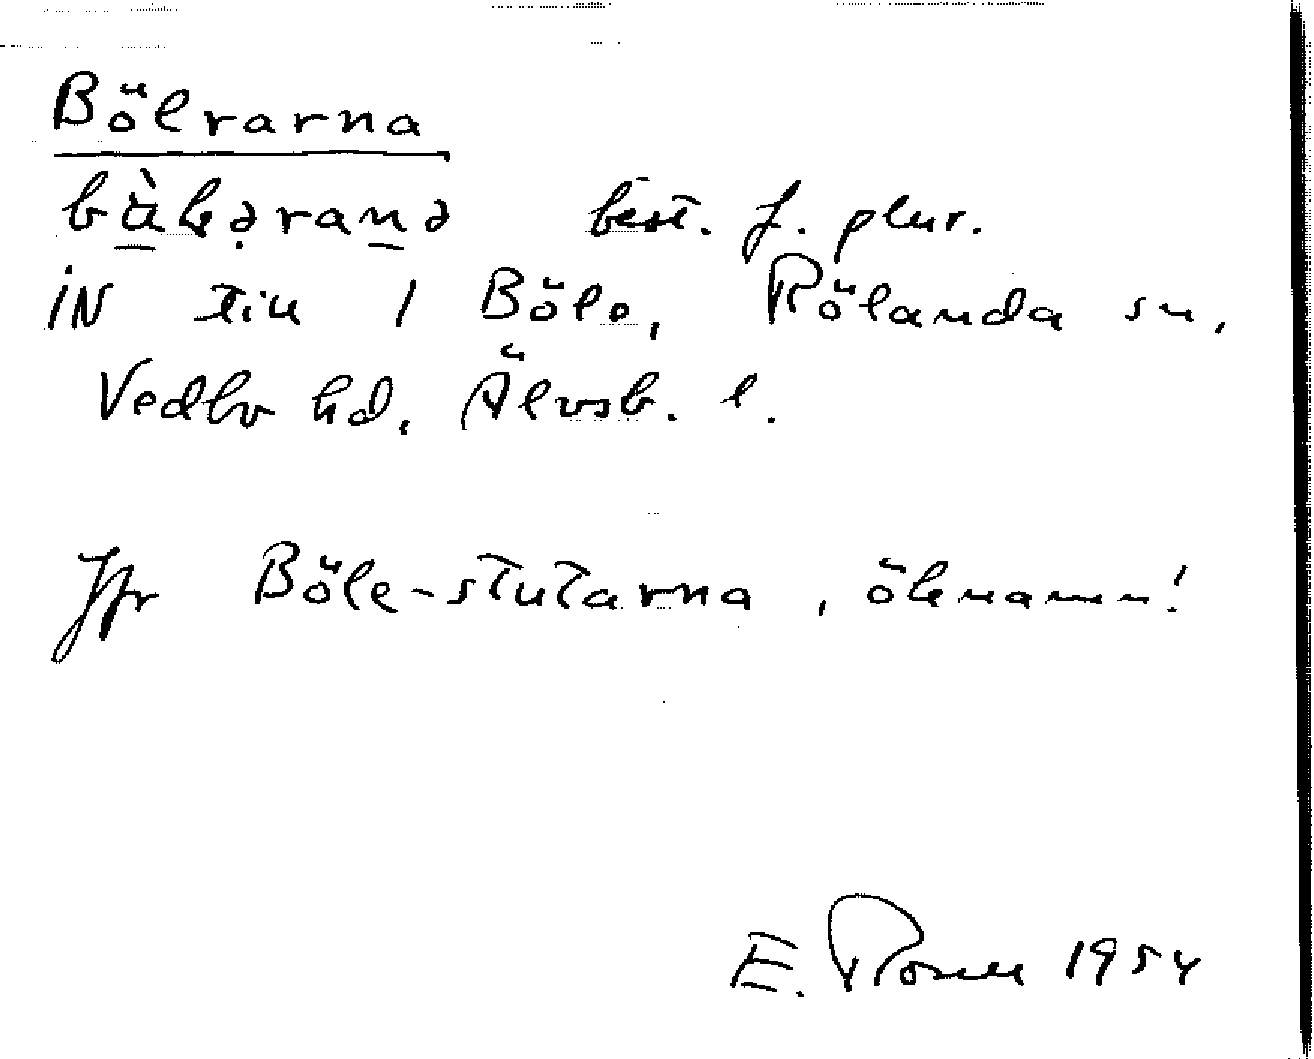 Bölrarna
best. f. plur.
IN till 1 Böle, Rölanda sn,
Vedbo hd, Älvsb. l.
Jfr Böle-stutarna, öknamn!
E. Rosell 1954